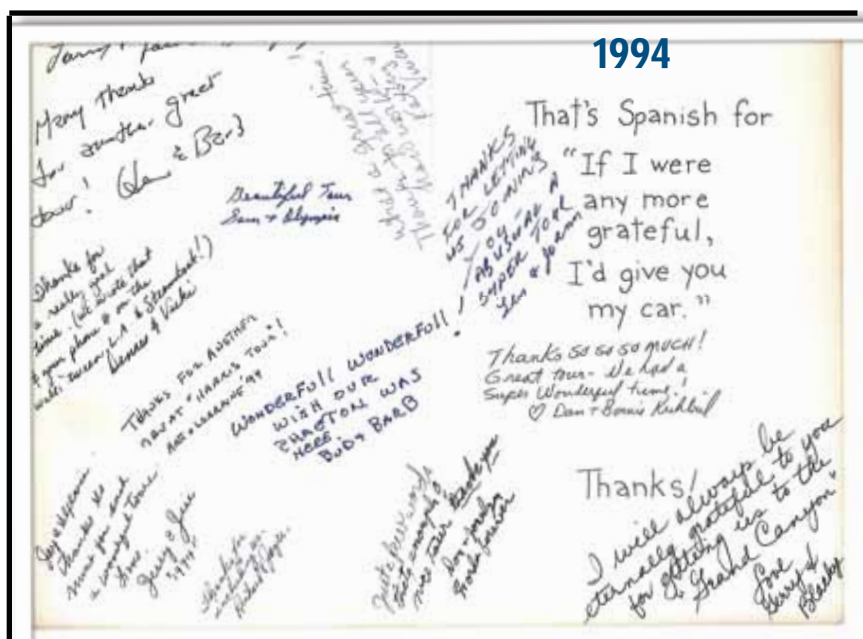 1994
Many Thanks
for another great
tour!
Beautiful Tour
Sam & Olympia
What a great time!
Thanks
THANKS
FOR LETTING
US JOIN
YOU - AS
USUAL A
SUPER TOUR
That's Spanish for
"If I were
any more
grateful,
I'd give you
my car."
Thanks for
a really good
time. (we wrote that
& your phone # on the
walls between L.A. & Steamboat!)
Dennis & Vicki
THANKS FOR ANOTHER
GREAT "HARRIS TOUR"!
'94
WONDERFULL WONDERFULL!
WISH OUR
PHAETON WAS
HERE.
BUD & BARB
Thanks so so so much!
Great tour - We had a
Super Wonderful time!
♡ Dan & Bonnie
Thanks!
I will always be
eternally grateful to you
for getting us to the
"Grand Canyon"
Love
Gerry &
Blacky
Thanks so
much you
a wonderful time
Love
Jerry &
"1994"
Thanks for
Just a few words
that's enough to
Thank you